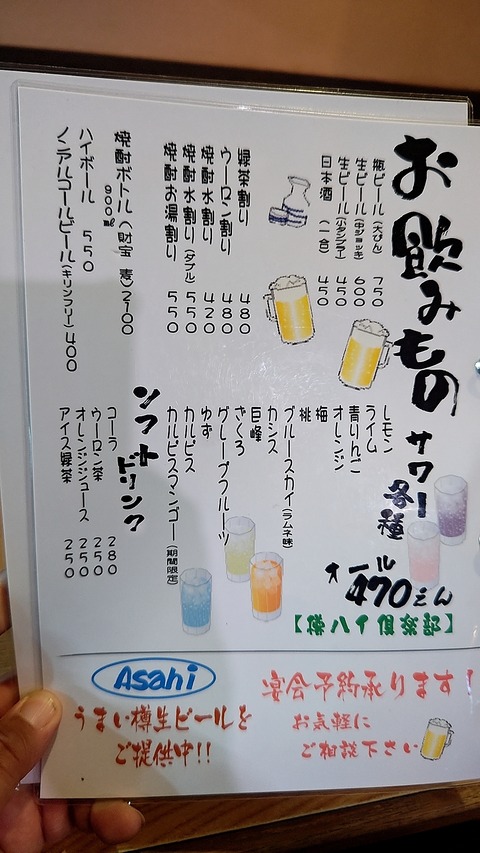 お飲みもの
瓶ビール(大びん) 750
生ビール(中ジョッキ) 600
生ビール(小タンブラー) 450
日本酒 (一合) 450
緑茶割り 480
ウーロン割り 480
焼酎水割り 420
焼酎水割り(ダブル) 550
焼酎お湯割り 550
焼酎ボトル(財宝 麦)2100
900㎖
ハイボール 550
ノンアルコールビール(キリンフリー)400
サワー各種
オール470えん
【樽ハイ倶楽部】
レモン
ライム
青りんご
オレンジ
梅
桃
ブルースカイ(ラムネ味)
カシス
巨峰
ざくろ
グレープフルーツ
ゆず
カルピス
カルピスマンゴー(期間限定)
ソフトドリンク
コーラ 280
ウーロン茶 250
オレンジジュース 250
アイス緑茶 250
Asahi
うまい樽生ビールを
ご提供中!!
宴会予約承ります!
お気軽に
ご相談下さい